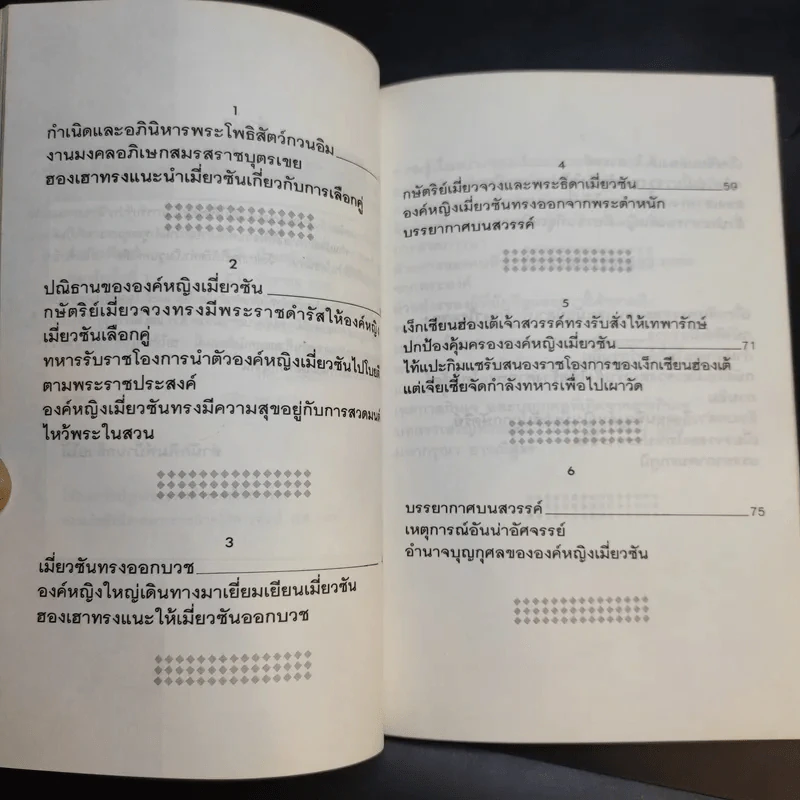 1
กำเนิดและอภินิหารพระโพธิสัตว์กวนอิม
งานมงคลอภิเษกสมรสราชบุตรเขย
ฮองเฮาทรงแนะนำเมี่ยวซันเกี่ยวกับการเลือกคู่
2
ปณิธานขององค์หญิงเมี่ยวซัน
กษัตริย์เมี่ยวจวงทรงมีพระราชดำรัสให้องค์หญิง
เมี่ยวซันเลือกคู่
ทหารรับราชโองการนำตัวองค์หญิงเมี่ยวซันไปโบยตี
ตามพระราชประสงค์
องค์หญิงเมี่ยวซันทรงมีความสุขอยู่กับการสวดมนต์
ไหว้พระในสวน
3
เมี่ยวซันทรงออกบวช
องค์หญิงใหญ่เดินทางมาเยี่ยมเยียนเมี่ยวซัน
ฮองเฮาทรงแนะให้เมี่ยวซันออกบวช
4
กษัตริย์เมี่ยวจวงและพระธิดาเมี่ยวซัน 59
องค์หญิงเมี่ยวซันทรงออกจากพระตำหนัก
บรรยากาศบนสวรรค์
5
เง็กเซียนฮ่องเต้เจ้าสวรรค์ทรงรับสั่งให้เทพารักษ์
ปกป้องคุ้มครององค์หญิงเมี่ยวซัน 71
ไท้แปะกิมแชรับสนองราชโองการของเง็กเซียนฮ่องเต้
แต่เจี่ยเซี้ยจัดกำลังทหารเพื่อไปเผาวัด
6
บรรยากาศบนสวรรค์ 75
เหตุการณ์อันน่าอัศจรรย์
อำนาจบุญกุศลขององค์หญิงเมี่ยวซัน